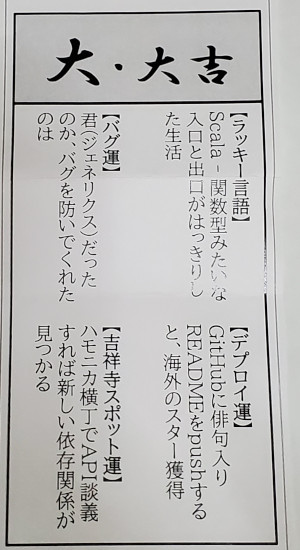 大・大吉
【ラッキー言語】
Scala - 関数型みたいな
入口と出口がはっきりし
た生活
【デプロイ運】
GitHubに俳句入り
READMEをpushする
と、海外のスター獲得
【バグ運】
君(ジェネリクス)だった
のか、バグを防いでくれた
のは
【吉祥寺スポット運】
ハモニカ横丁でAPI談義
すれば新しい依存関係が
見つかる